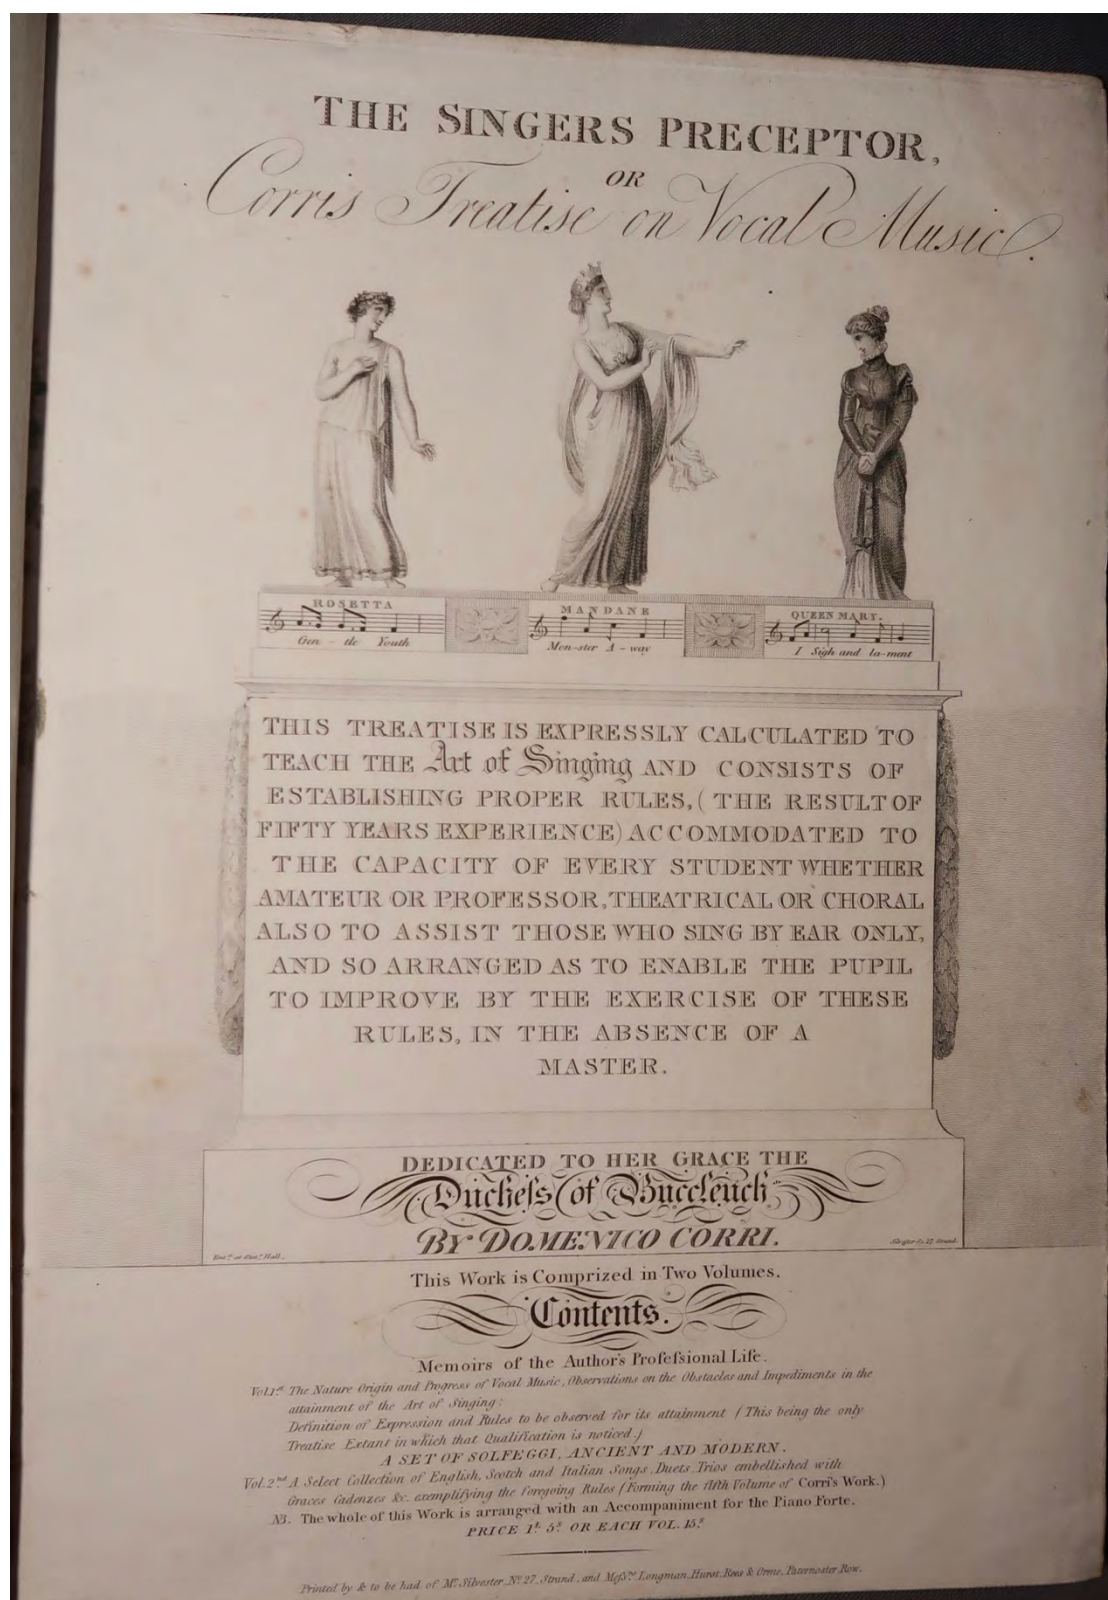 THE SINGERS PRECEPTOR,
OR
Corris Treatise on Vocal Music.
ROSETTA
Gen - tle Youth
MANDANE
Mon-ster A - way
QUEEN MARY.
I Sigh and la-ment
THIS TREATISE IS EXPRESSLY CALCULATED TO
TEACH THE Art of Singing AND CONSISTS OF
ESTABLISHING PROPER RULES, (THE RESULT OF
FIFTY YEARS EXPERIENCE) ACCOMMODATED TO
THE CAPACITY OF EVERY STUDENT WHETHER
AMATEUR OR PROFESSOR, THEATRICAL OR CHORAL
ALSO TO ASSIST THOSE WHO SING BY EAR ONLY,
AND SO ARRANGED AS TO ENABLE THE PUPIL
TO IMPROVE BY THE EXERCISE OF THESE
RULES, IN THE ABSENCE OF A
MASTER.
DEDICATED TO HER GRACE THE
Ducheſs of Buccleuch
BY DOMENICO CORRI.
Ent.d at Stat.s Hall.
27 Strand.
This Work is Comprized in Two Volumes.
Contents.
Memoirs of the Author's Profeſsional Life.
Vol.1.st The Nature Origin and Progress of Vocal Music, Observations on the Obstacles and Impediments in the
attainment of the Art of Singing:
Definition of Expression and Rules to be observed for its attainment (This being the only
Treatise Extant in which that Qualification is noticed.)
A SET OF SOLFEGGI, ANCIENT AND MODERN.
Vol.2.nd A Select Collection of English, Scotch and Italian Songs, Duets, Trios embellished with
Graces Cadenzes &c. exemplifying the foregoing Rules (Forming the fifth Volume of Corri's Work.)
NB. The whole of this Work is arranged with an Accompaniment for the Piano Forte.
PRICE 1£ 5s OR EACH VOL. 15s
Printed by & to be had of Mr Silvester No 27, Strand, and Meſsrs Longman, Hurst, Rees & Orme, Paternoster Row.